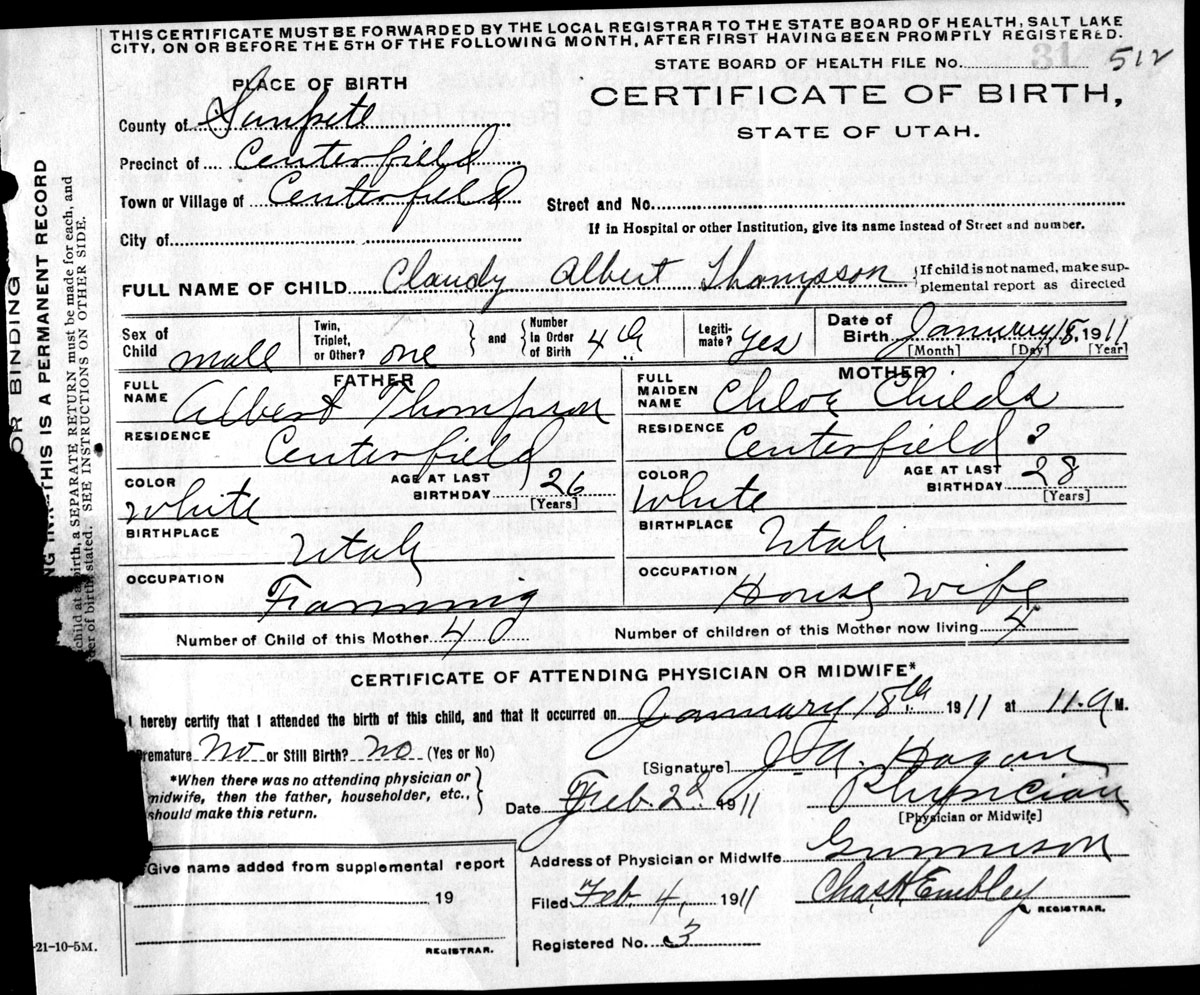 THIS CERTIFICATE MUST BE FORWARDED BY THE LOCAL REGISTRAR TO THE STATE BOARD OF HEALTH, SALT LAKE
CITY, ON OR BEFORE THE 5TH OF THE FOLLOWING MONTH, AFTER FIRST HAVING BEEN PROMPTLY REGISTERED.
STATE BOARD OF HEALTH FILE No. 31 512
PLACE OF BIRTH
CERTIFICATE OF BIRTH,
STATE OF UTAH.
County of Sanpete
Precinct of Centerfield
Town or Village of Centerfield
Street and No.
City of
If in Hospital or other Institution, give its name Instead of Street and number.
FULL NAME OF CHILD Claudy Albert Thompson { If child is not named, make sup-
plemental report as directed
Sex of Child male
Twin, Triplet, or Other? one } and { Number in Order of Birth 4th
Legiti-mate? yes
Date of Birth January 18, 1911
[Month] [Day] [Year]
FATHER
FULL NAME Albert Thompson
RESIDENCE Centerfield
COLOR White
AGE AT LAST BIRTHDAY 26
[Years]
BIRTHPLACE Utah
OCCUPATION Framing
MOTHER
FULL MAIDEN NAME Chloe Childs
RESIDENCE Centerfield
COLOR White
AGE AT LAST BIRTHDAY 28
[Years]
BIRTHPLACE Utah
OCCUPATION House Wife
Number of Child of this Mother 4
Number of children of this Mother now living 4
CERTIFICATE OF ATTENDING PHYSICIAN OR MIDWIFE*
I hereby certify that I attended the birth of this child, and that it occurred on January 18th 1911 at 11.A M.
Premature No or Still Birth? No (Yes or No)
*When there was no attending physician or
midwife, then the father, householder, etc.,
should make this return.
[Signature] Hagan
Date Feb. 2d 1911
Physician
[Physician or Midwife]
Give name added from supplemental report
19
REGISTRAR.
Address of Physician or Midwife Gunnison
Filed Feb 4, 1911
Chas K Embley
REGISTRAR.
Registered No. 3
-21-10-5M.
OR BINDING
NG INK—THIS IS A PERMANENT RECORD
child at a birth, a SEPARATE RETURN must be made for each, and
der of birth, stated. SEE INSTRUCTIONS ON OTHER SIDE.